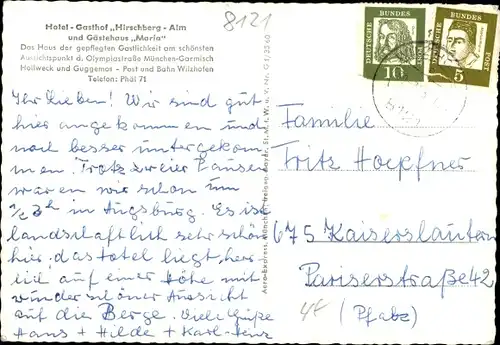 8121
Hotel - Gasthof „Hirschberg - Alm
und Gästehaus „Maria"
Das Haus der gepflegten Gastlichkeit am schönsten
Aussichtspunkt d. Olympiastraße München-Garmisch
Hallweck und Guggemos - Post und Bahn Wilzhofen
Telefon: Phäl 71
Ihr Lieben! Wir sind gut
hier angekommen und
noch besser untergekom
men. Trotz zweier Pausen
waren wir schon um
1/2 3h in Augsburg. Es ist
landschaftlich sehr schön
hier. das Hotel liegt herr
lich auf einer Höhe mit
wunderschöner Aussicht
auf die Berge. Viele Grüße
Hans + Hilde + Karl-Heinz
DEUTSCHE BUNDES POST
10
DEUTSCHE BUNDES POST
5
Familie
Fritz Hoepfner
675 Kaiserslautern
Pariserstraße 42
(Pfalz)